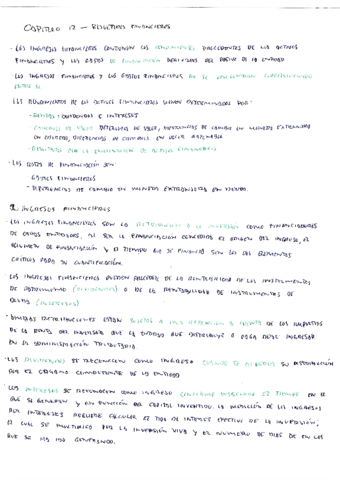 CAPÍTULO 12 — RESULTADOS FINANCIEROS
· LOS INGRESOS FINANCIEROS CONTIENEN LOS RENDIMIENTOS PROCEDENTES DE LOS ACTIVOS
FINANCIEROS Y LOS COSTES DE FINANCIACIÓN DERIVADOS DEL PASIVO DE LA ENTIDAD
· LOS INGRESOS FINANCIEROS Y LOS COSTES FINANCIEROS NO SE
ENTRE SÍ
· LOS RENDIMIENTOS DE LOS ACTIVOS FINANCIEROS VIENEN DETERMINADOS POR:
DIVIDENDOS E INTERESES
DE VALOR, DIFERENCIAS DE CAMBIO EN MONEDA EXTRANJERA
EN VALOR RAZONABLE
- RESULTADO POR LA ENAJENACIÓN DE ACTIVOS FINANCIEROS
· LOS COSTES DE FINANCIACIÓN SON:
- GASTOS FINANCIEROS
- DIFERENCIAS DE CAMBIO EN MONEDA EXTRANJERA
INGRESOS FINANCIEROS
· LOS INGRESOS FINANCIEROS SON LA RETRIBUCIÓN A LA INVERSIÓN COMO FINANCIADORES
DE OTRAS ENTIDADES. AL SER LA FINANCIACIÓN CONCEDIDA EL ORIGEN DEL INGRESO, EL
VOLUMEN DE FINANCIACIÓN Y EL TIEMPO QUE SE FINANCIA SON LOS DOS ELEMENTOS
CRÍTICOS PARA SU CUANTIFICACIÓN.
· LOS INGRESOS FINANCIEROS PUEDEN PROCEDER DE LA RENTABILIDAD DE LOS INSTRUMENTOS
DE PATRIMONIO (DIVIDENDOS) O DE LA RENTABILIDAD DE INSTRUMENTOS DE
DEUDA (INTERESES)
· DICHAS RETRIBUCIONES ESTÁN SUJETAS A UNA RETENCIÓN A CUENTA DE LOS IMPUESTOS
DE LA RENTA DEL INVERSOR QUE LA ENTIDAD QUE DISTRIBUYE O PAGA DEBE INGRESAR
EN LA ADMINISTRACIÓN TRIBUTARIA
· LOS DIVIDENDOS SE RECONOCEN COMO INGRESO CUANDO SE SU DISTRIBUCIÓN
POR EL ÓRGANO COMPETENTE DE LA ENTIDAD
· LOS INTERESES SE RECONOCEN COMO INGRESO EL TIEMPO EN EL
QUE SE GENERAN Y EN FUNCIÓN DEL CAPITAL INVERTIDO. LA MEDICIÓN DE LOS INGRESOS
POR INTERESES REQUIERE CALCULAR EL TIPO DE INTERÉS EFECTIVO DE LA INVERSIÓN,
EL CUAL SE MULTIPLICA POR LA INVERSIÓN VIVA Y EL NÚMERO DE DÍAS DE EN LOS
QUE SE HA IDO GENERANDO.